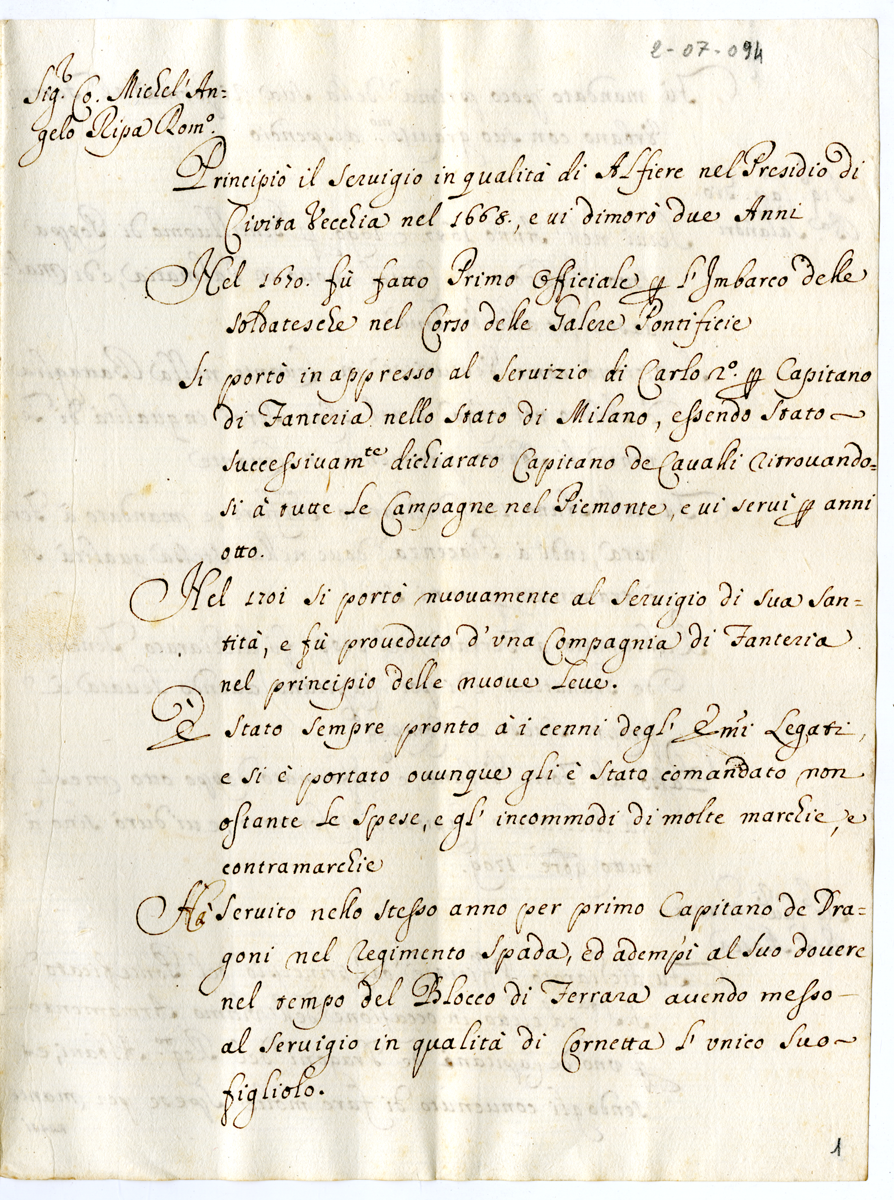 2-07-094
Sig.r Co. Michel'An=
gelo Ripa Rom.o
Principiò il servigio in qualità di Alfiere nel Presidio di
Civita Vecchia nel 1668., e vi dimorò due Anni
Nel 1670. fù fatto Primo Officiale p l'Imbarco delle
soldatesche nel Corso delle Galere Pontificie
Si portò in appresso al servizio di Carlo 2.o p Capitano
di Fanteria nello stato di Milano, essendo stato
successivam.te dichiarato Capitano de Cavalli ritrovando=
si à tutte le Campagne nel Piemonte, e vi servì p anni
otto.
Nel 1701 si portò nuovamente al servigio di sua san=
tità, e fù proveduto d'vna Compagnia di Fanteria
nel principio delle nuove leve.
È stato sempre pronto à i cenni degl' Emi Legati,
e si è portato ovunque gli è stato comandato non
ostante le spese, e gl' incommodi di molte marchie, e
contramarchie
Hà servito nello stesso anno per primo Capitano de Dra=
goni nel Regimento Spada, ed adempì al suo dovere
nel tempo del Blocco di Ferrara avendo messo
al servigio in qualità di Cornetta l' vnico suo
figliolo.
1